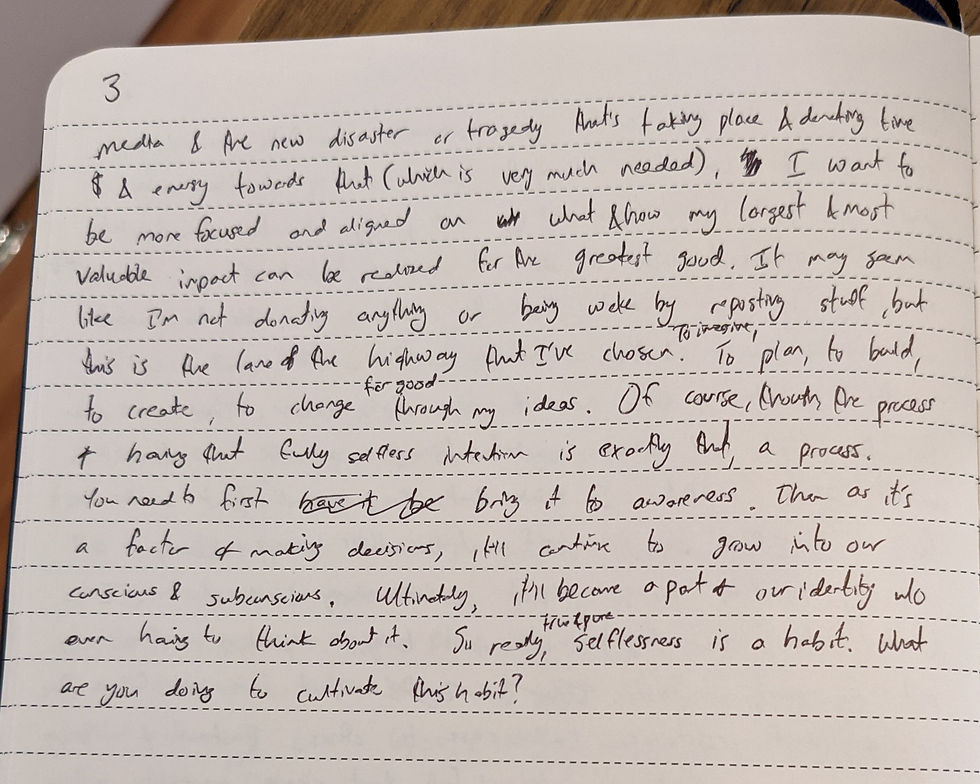 3
media & the new disaster or tragedy that's taking place & donating time
$ & energy towards that (which is very much needed), I want to
be more focused and aligned on what & how my largest & most
valuable impact can be realized for the greatest good. It may seem
like I'm not donating anything or being woke by reposting stuff, but
To imagine,
this is the lane of the highway that I've chosen. To plan, to build,
for good
to create, to change through my ideas. Of course, though, the process
of having that fully selfless intention is exactly that, a process.
You need to first have it be bring it to awareness. Then as it's
a factor of making decisions, it'll continue to grow into our
conscious & subconscious. Ultimately, it'll become a part of our identity w/o
even having to think about it. So really, selflessness is a habit. What
true & pure
are you doing to cultivate this habit?